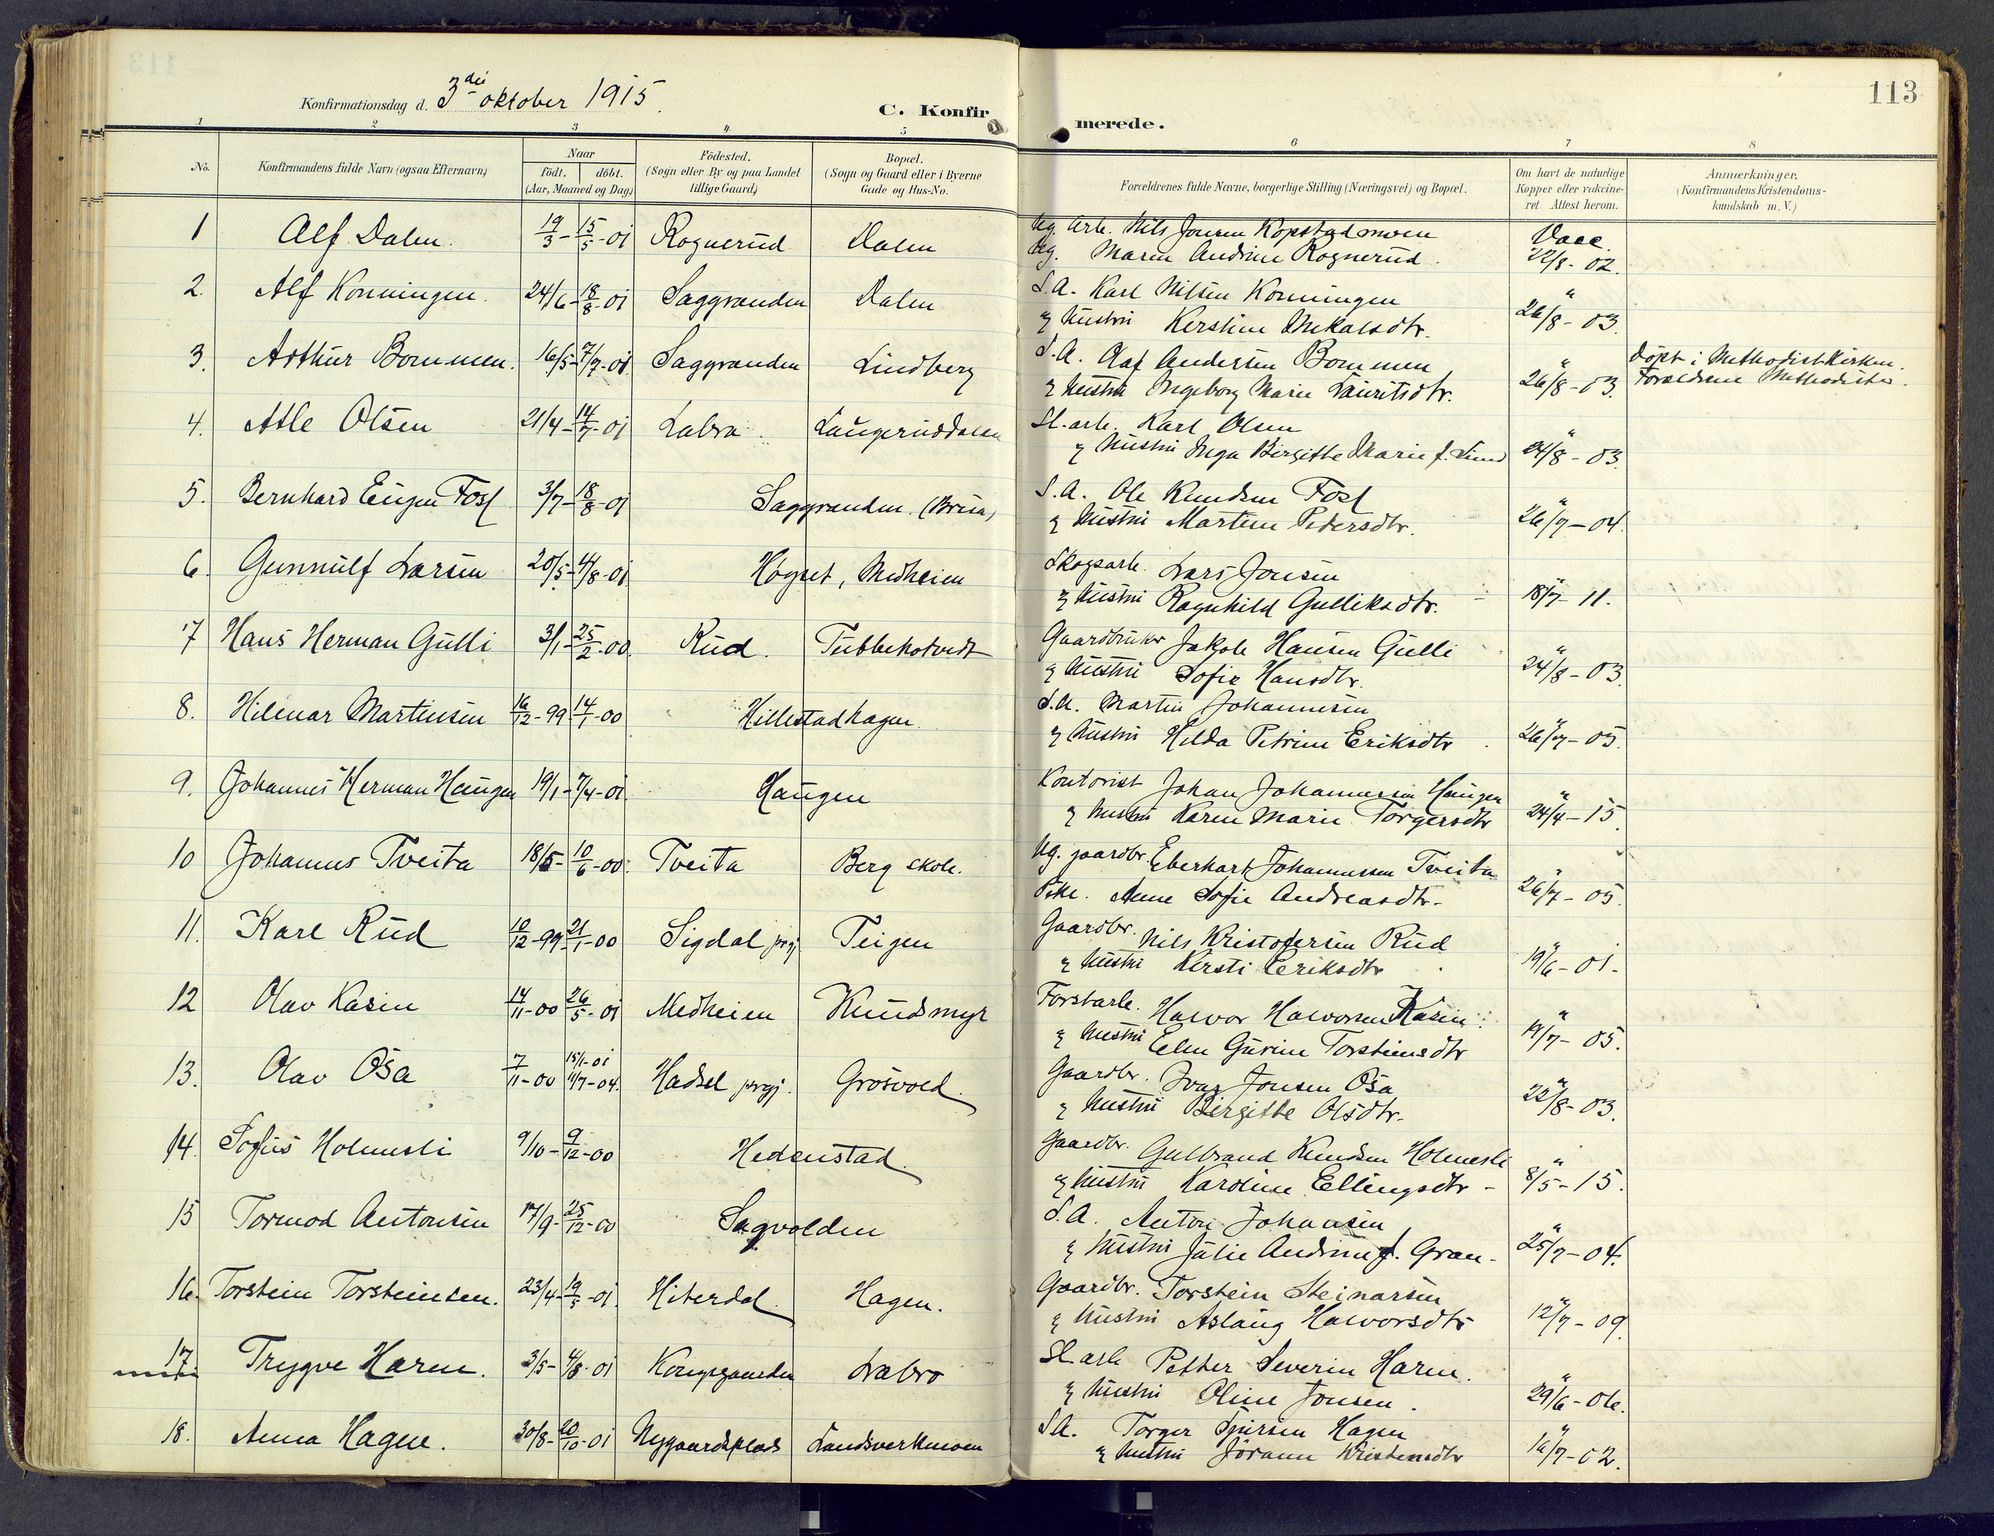 113
Konfirmationsdag d. 3die oktober 1915.
C. Konfirmerede.
1 2 3 4 5 6 7 8
No. Konfirmandens fulde Navn (ogsaa Efternavn) Naar födt. döbt. (Aar, Maaned og Dag) Födested. (Sogn eller By og paa Landet tillige Gaard) Bopæl. (Sogn og Gaard eller i Byerne Gade og Hus-No. Forældrenes fulde Navne, borgerlige Stilling (Næringsvei) og Bopæl. Om havt de naturlige Kopper eller vaccineret. Attest herom. Anmærkninger. (Konfirmandens Kristendomskundskab m. V.)
1 Alf Dalen. 19/3 - 15/5 - 01 Rognerud Dalen Ug. Arb. Nils Jonsen Kopstadmoen Vacc.
Ug. Maren Andrine Rognerud. 22/8 - 02.
2. Alf Konningen. 24/6 - 18/8 - 01 Saggranden Dalen S.A. Karl Nilsen Konningen "
og hustru Kerstine Mikalsdtr. 26/8 - 03.
3. Arthur Bommen. 16/5 - 7/7 - 01 Saggranden Lindberg S.A. Olaf Andersen Bommen " Döpt i Methodistkirken.
og hustru Ingeborg Marie Lauritsdtr. 26/8 - 03. Forældrene Methodister.
4. Atle Olsen 21/4 - 14/7 - 01 Labro. Laugeruddalen Sl. arb. Karl Olsen "
og hustru Inga Birgitte Marie f. Lund 24/8 - 03.
5. Bernhard Eugen Foss 3/7 - 18/8 - 01 Saggranden. (Brua) S.A. Ole Knudsen Foss "
og hustru Martine Pedersdtr. 26/7 - 04.
6. Gunnulf Larsen 20/5 - 4/8 - 01 Høgset, Medheien Skogsarb. Lars Jonsen "
og hustru Ragnhild Gulliksdtr. 18/7 - 11.
7 Hans Herman Gulli 3/1 - 25/2 - 00. Rud. Tubbekotvedt Gaardbruker Jakob Hansen Gulli "
og hustru Sofie Hansdtr. 24/8 - 03.
8. Hilmar Martinsen 16/12 - 99 14/1 - 00 Hillestadhagen. S.A. Martin Johannesen "
og hustru Hilda Petrine Eriksdtr. 26/7 - 05.
9. Johannes Herman Haugen 19/1 - 7/4 - 01. Haugen Kontorist Johan Johannessen Haugen "
og hustru Karen Marie Torgersdtr 24/4 - 15.
10 Johannes Tveita 18/5 - 10/6 - 00. Tveita Berg skole. Ug. gaardbr. Eberhart Johannessen Tveita "
Pike. Anne Sofie Andreasdtr. 26/7 - 05.
11. Karl Rud 10/12 - 99 21/1 - 00 Sigdal prgj. Teigen Gaardbr. Nils Kristofersen Rud "
og hustru Kersti Eriksdtr. 19/6 - 01.
12 Olav Kasin 14/11 - 00 26/5 - 01 Medheien Knudsmyr Forstarb. Halvor Halvorsen Kasin. "
og hustru Elen Gurine Torsteinsdtr 19/7 - 05.
13. Olav Øsa 7/11 - 00 15/1 - 01 11/7 - 04. Hadsel prgj. Grøsvold Gaardbr. Ivar Jonsen Øsa "
og hustru Birgitte Olsdtr. 22/8 - 03.
14. Sofus Holmesli 9/10 - 9/12 - 00 Hedenstad. Gaardbr. Gulbrand Knudsen Holmesli "
og hustru Karoline Ellingsdtr - 8/5 - 15.
15 Tormod Antonsen 17/9 - 25/12 - 00 Sagvolden S.A. Anton Johansen "
og hustru Julie Andrine f. Gran - 25/7 - 04.
16. Torstein Torsteinsen. 23/4 - 19/5 - 01. Hiterdal. Hagen. Gaardbr. Torstein Steinarsen "
og hustru Aslaug Halvorsdtr 12/7 - 09.
17. Trygve Haren. 3/5 - 4/8 - 01 Kongsgaarden Labro Sl. arb Petter Severin Haren. "
og hustru Oline Jonsen. 29/6 - 06.
18. Anna Hagen. 30/8 - 20/10 - 01 Nygaardsplads Landsverkmoen S.A. Torger Hagen "
og hustru Jörann Kristensdtr 16/7 - 02.